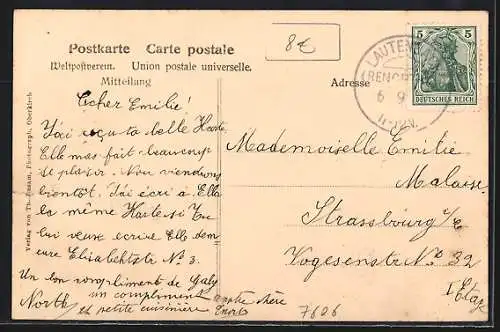 Postkarte Carte postale
Weltpostverein. Union postale universelle.
Mitteilung
Adresse
8€
5 5
DEUTSCHES REICH
LAUTEN
(RENCH
6 9
11-12N.
Verlag von Th. Photograph, Oberkirch
Cher Emilie!
J'ai reçu ta belle Karte.
Elle mas fait beaucoup
de plaisir. Nou viendrons
bientôt. J'ai écri à Ella
la même Karte si Tu
lui veux écrire Elle dem-
eure Elisabehtste No 3.
Un bon compliment de Gaby
un compliment
North
et petite cuisinière
Mademoiselle Emilie
Malaise
Strassbourg i/e
Vogesenstr No 32
I Etag
7606